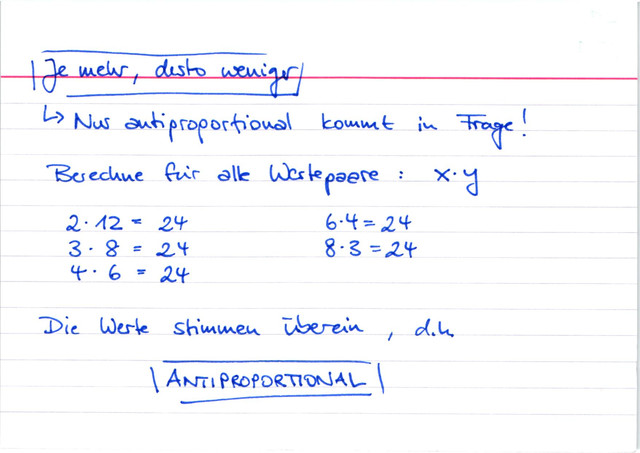 Je mehr, desto weniger
↳ Nur antiproportional kommt in Frage!
Berechne für alle Wertepaare : x·y
2·12 = 24 6·4 = 24
3·8 = 24 8·3 = 24
4·6 = 24
Die Werte stimmen überein, d.h.
ANTIPROPORTIONAL